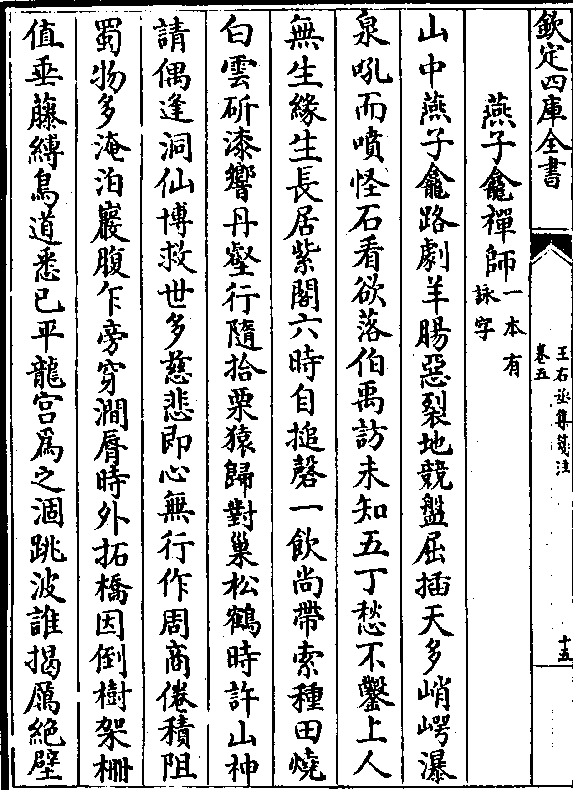 欽定四庫全書
王右丞集箋注
卷五
十五
燕子龕禪師一本有
詠字
山中燕子龕路劇羊腸惡裂地競盤屈插天多峭崿瀑
泉吼而噴怪石看欲落伯禹訪未知五丁愁不鑿上人
無生緣生長居紫閣六時自搥磬一飲尚帶索種田燒
白雲斫漆響丹壑行隨拾栗猿歸對巢松鶴時許山神
請偶逢洞仙博救世多慈悲即心無行作周商倦積阻
蜀物多淹泊巖腹乍旁穿澗脣時外拓橋因倒樹架柵
值垂藤縛鳥道悉已平龍宮為之涸跳波誰揭厲絶壁